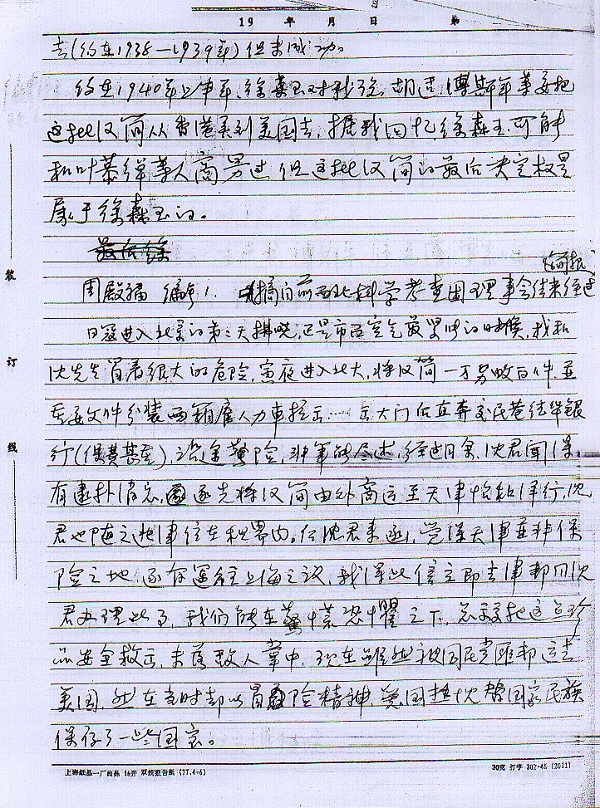 19 年 月 日 第
去(约在1938—1939年)但未成功。
约在1940年上半年,徐森玉对我说,胡适、傅斯年等要把
这批汉简从香港弄到美国去,据我回忆徐森玉可能
和叶恭绰等人商量过,但这批汉简的最后决定权是
属于徐森玉的。
周殿福 编号1. 摘自前西北科学考查团理事会结束经过
日寇进入北京的第二天拂晓,正是市面空气最紧张的时候,我和
沈先生冒着很大的危险,夤夜进入北大,将汉简一万另数百件並
重要文件分装两箱雇人力車拉出 出大门后直奔交民巷
行(保费甚重),沿途艰险,非笔能尽述,经过月余,沈君闻
有逮扑消息,遂先将汉简由外商运至天津,沈
君也随之抵津住在租界内。后沈君来函,觉得天津並非保
险之地,遂有运往上海之议,我得此信立即去津帮同沈
君办理此事,我们能在惊慌恐惧之下,总算把这点珍
品安全救出,未落敌人掌中,现在虽然被国民党匪帮运去
美国,然在当时却以冒险精神,爱国热忱替国家民族
保存了一些国宝。
装
订
线
上海纸品一厂出品 16开 双线报告纸 (77.4-6)
30克 打字 302-48 (2011)